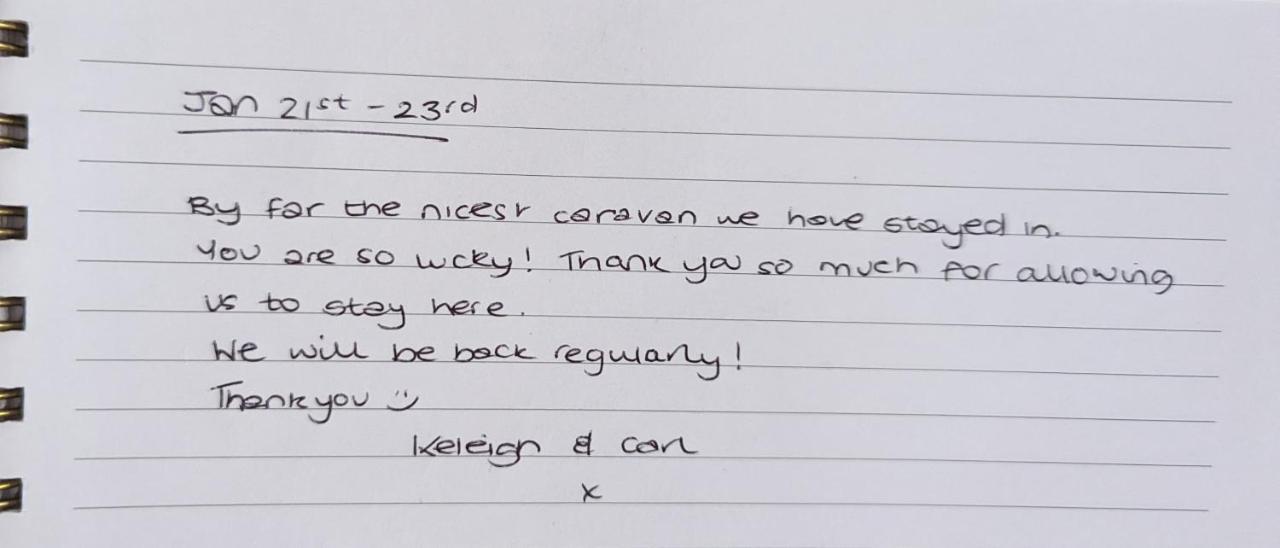 Jan 21st - 23rd
By far the nicest caravan we have stayed in.
You are so lucky! Thank you so much for allowing
us to stay here.
We will be back regularly!
Thankyou :)
Keleigh & Carl
x